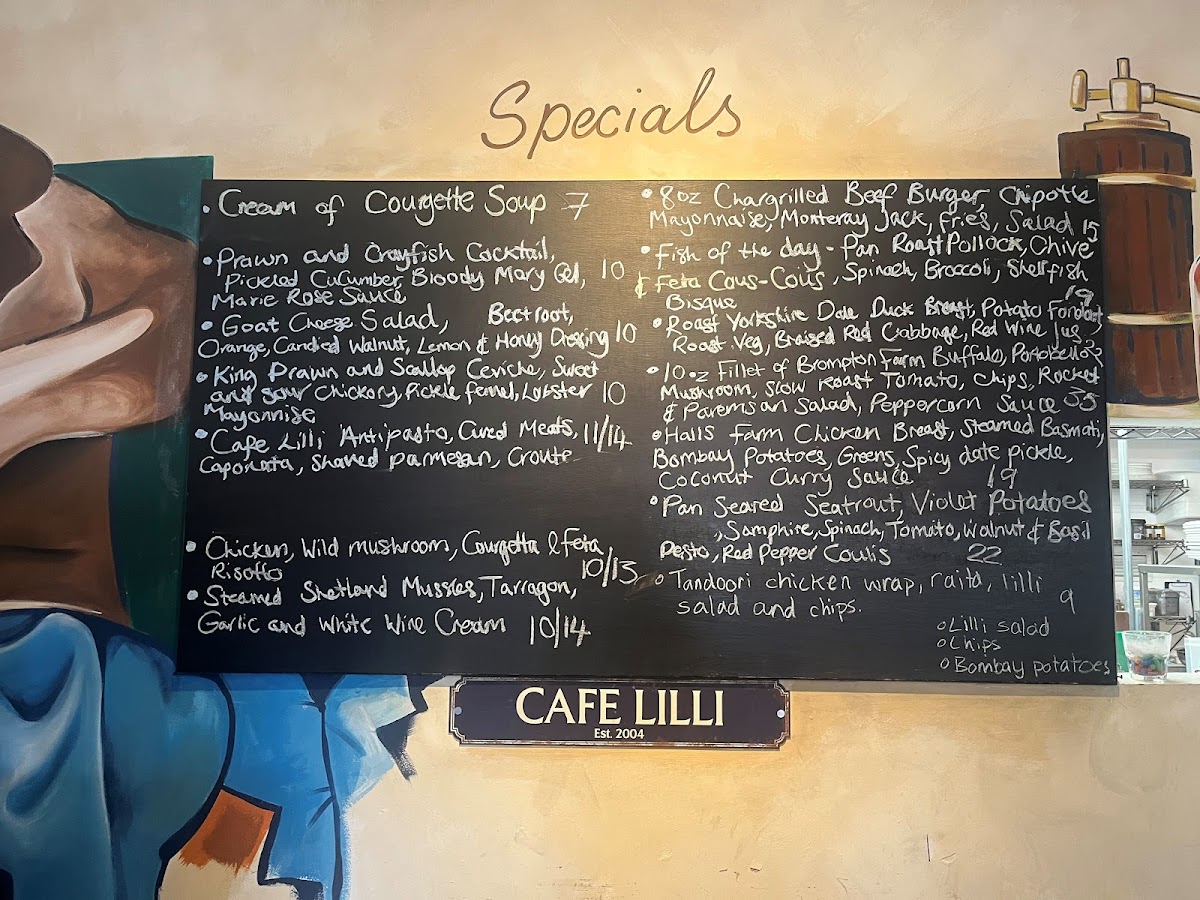 Specials
• Cream of Courgette Soup 7
• Prawn and Crayfish Cocktail,
Pickled Cucumber, Bloody Mary Gel, 10
Marie Rose Sauce
• Goat Cheese Salad, Beetroot,
Orange, Candied Walnut, Lemon & Honey Dressing 10
• King Prawn and Scallop Ceviche, Sweet
and Sour Chickory, Pickle fennel, Lobster 10
Mayonnise
• Cafe Lilli Antipasto, Cured Meats, 11/14
Caponata, Shaved parmesan, Croute
• Chicken, Wild mushroom, Courgette & Feta
Risotto 10/13
• Steamed Shetland Mussles, Tarragon,
Garlic and White Wine Cream 10/14
• 8oz Chargrilled Beef Burger, Chipotle
Mayonnaise, Monteray Jack, Fries, Salad 15
• Fish of the day - Pan Roast Pollock, Chive
& Feta Cous-Cous, Spinach, Broccoli, Shellfish
Bisque 19
• Roast Yorkshire Dale Duck Breast, Potato Fondant,
Roast Veg, Braised Red Cabbage, Red Wine Jus
• 10oz Fillet of Brompton Farm Buffalo, Portobello
Mushroom, Slow Roast Tomato, Chips, Rocket
& Paremsan Salad, Peppercorn Sauce 35
• Halls Farm Chicken Breast, Steamed Basmati,
Bombay Potatoes, Greens, Spicy date pickle,
Coconut Curry Sauce 19
• Pan Seared Seatrout, Violet Potatoes
, Samphire, Spinach, Tomato, Walnut & Basil
Pesto, Red Pepper Coulis 22
• Tandoori chicken wrap, raita, lilli
salad and chips. 9
• Lilli salad
• Chips
• Bombay potatoes
CAFE LILLI
Est. 2004